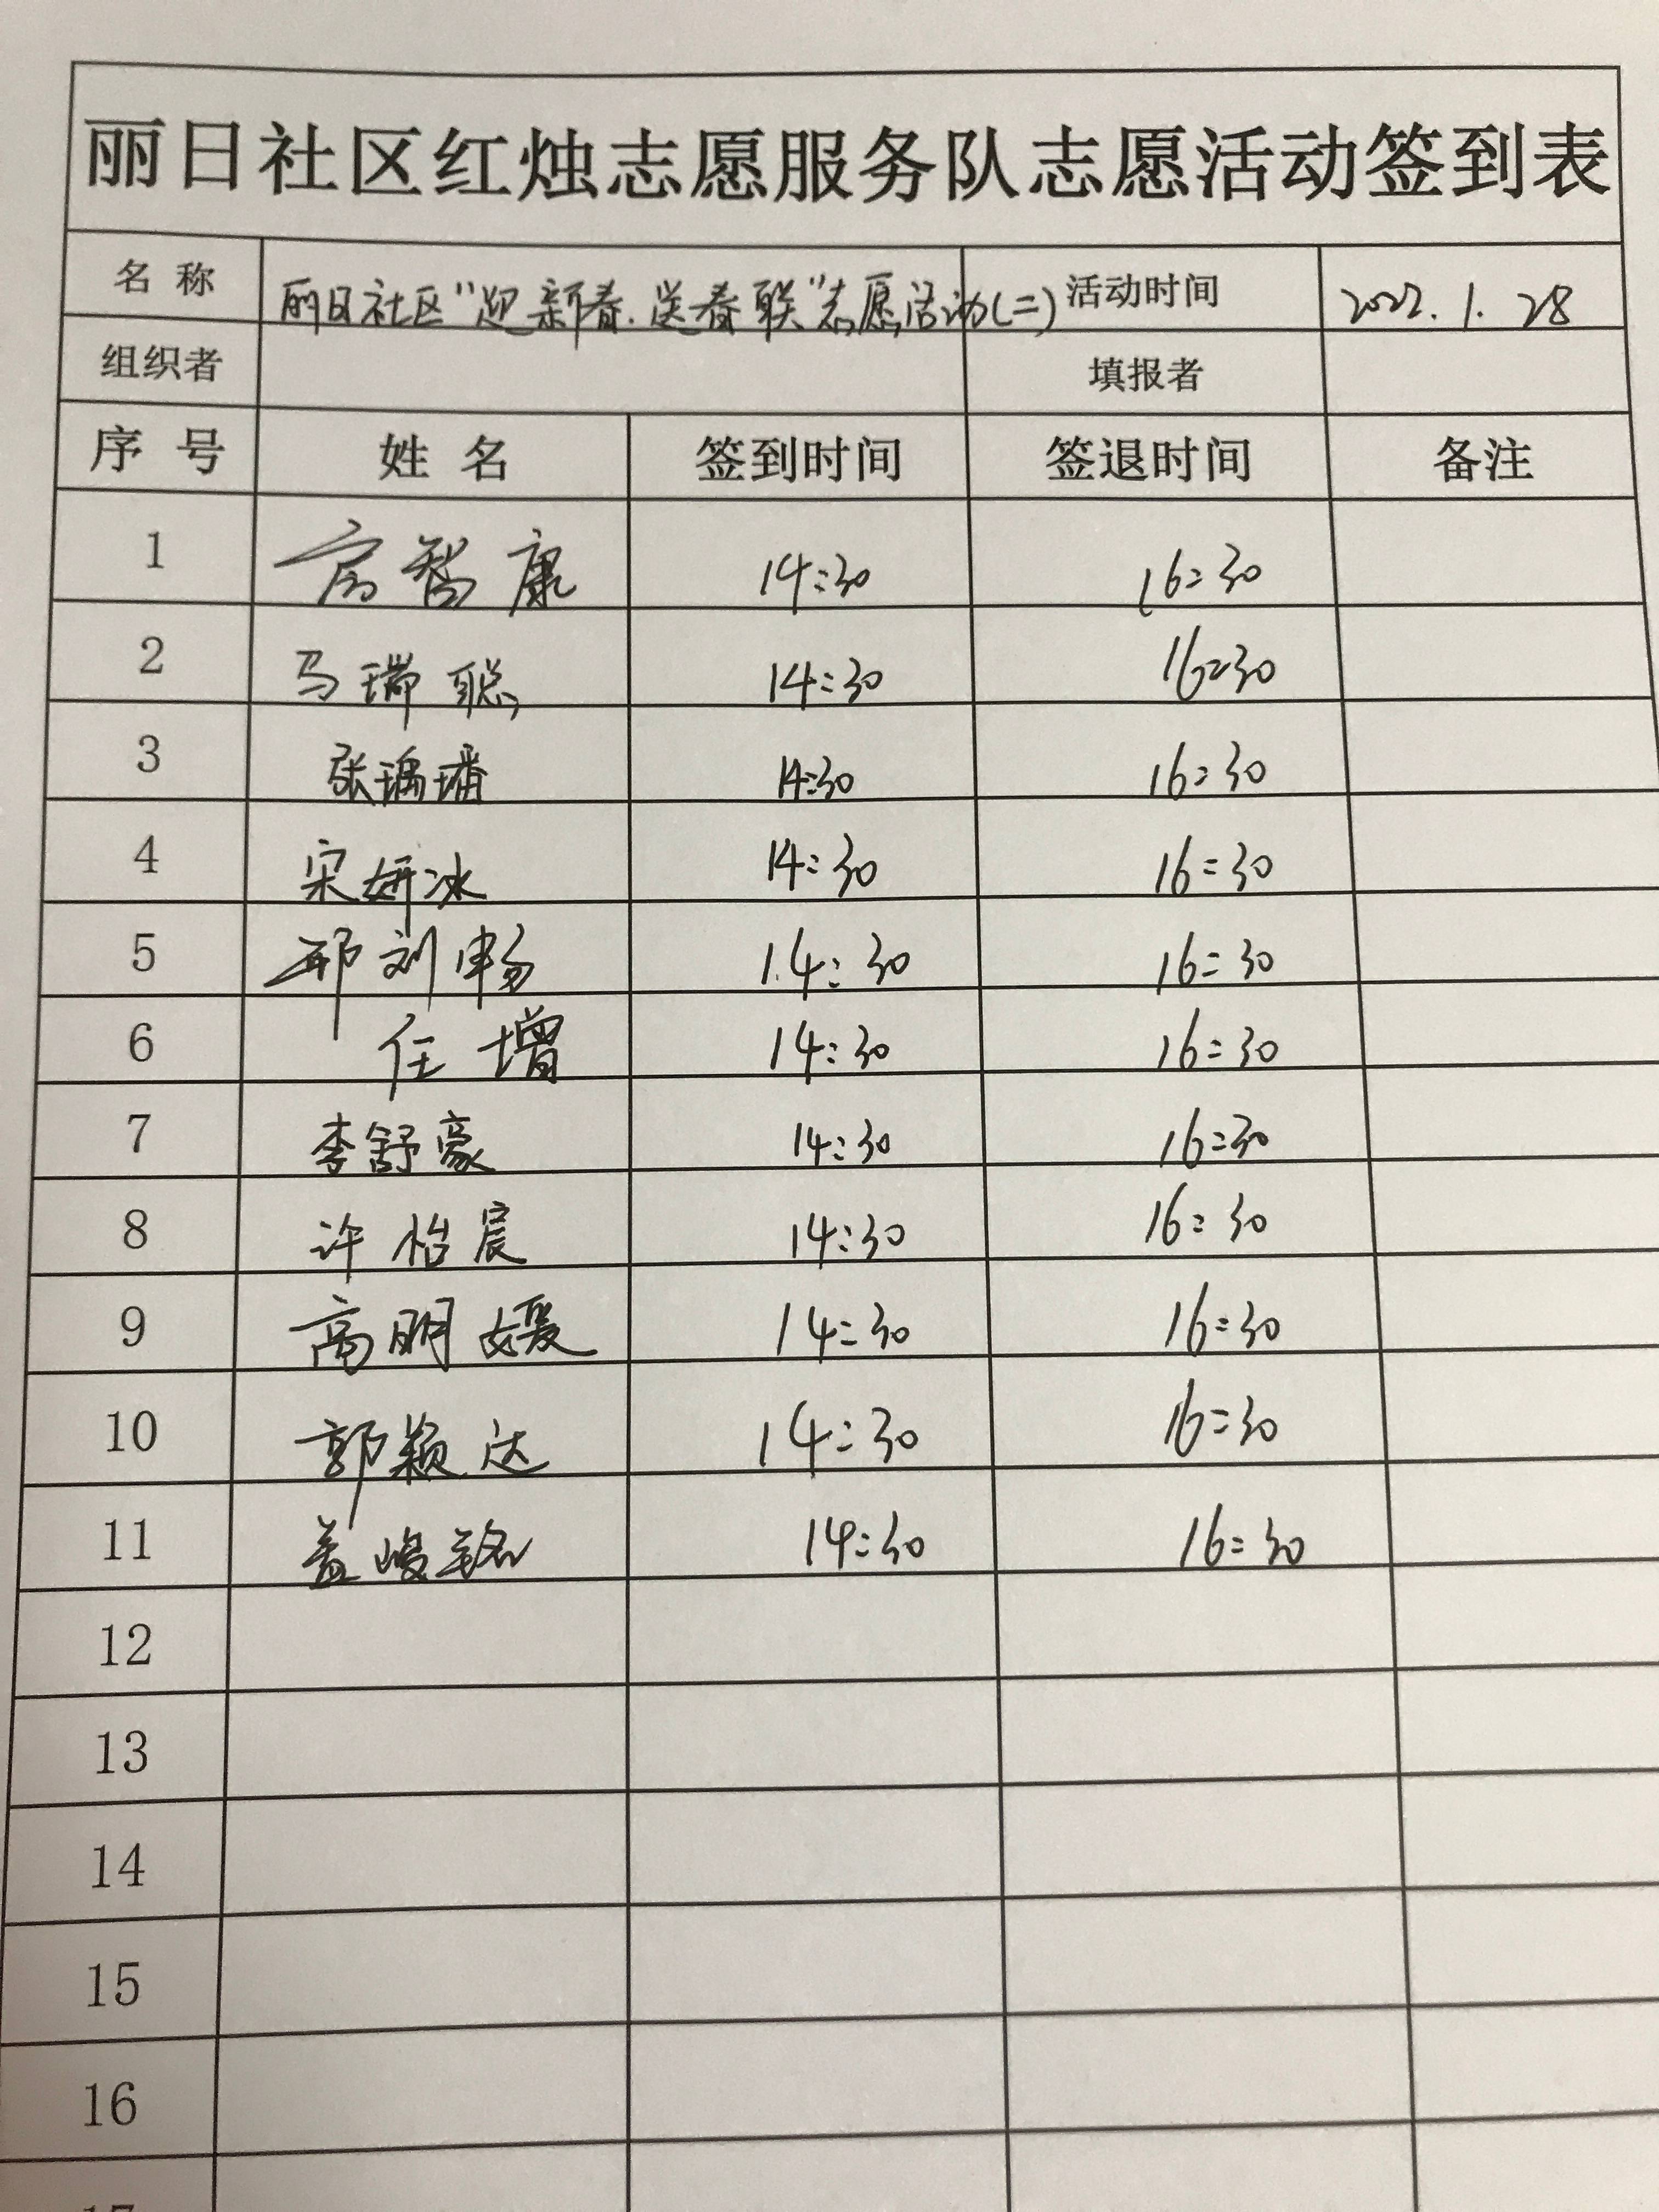 丽日社区红烛志愿服务队志愿活动签到表
名 称 丽日社区“迎新春.送春联”志愿活动(二) 活动时间 2022.1.28
组织者 填报者
序 号 姓 名 签到时间 签退时间 备注
1 高智康 14:30 16:30
2 马瑞聪 14:30 16:30
3 张瑀璠 14:30 16:30
4 宋妍冰 14:30 16:30
5 邢刘畅 14:30 16:30
6 任增 14:30 16:30
7 李舒豪 14:30 16:30
8 许怡宸 14:30 16:30
9 高明媛 14:30 16:30
10 郭颖达 14:30 16:30
11 盖峻铭 14:30 16:30
12
13
14
15
16
17